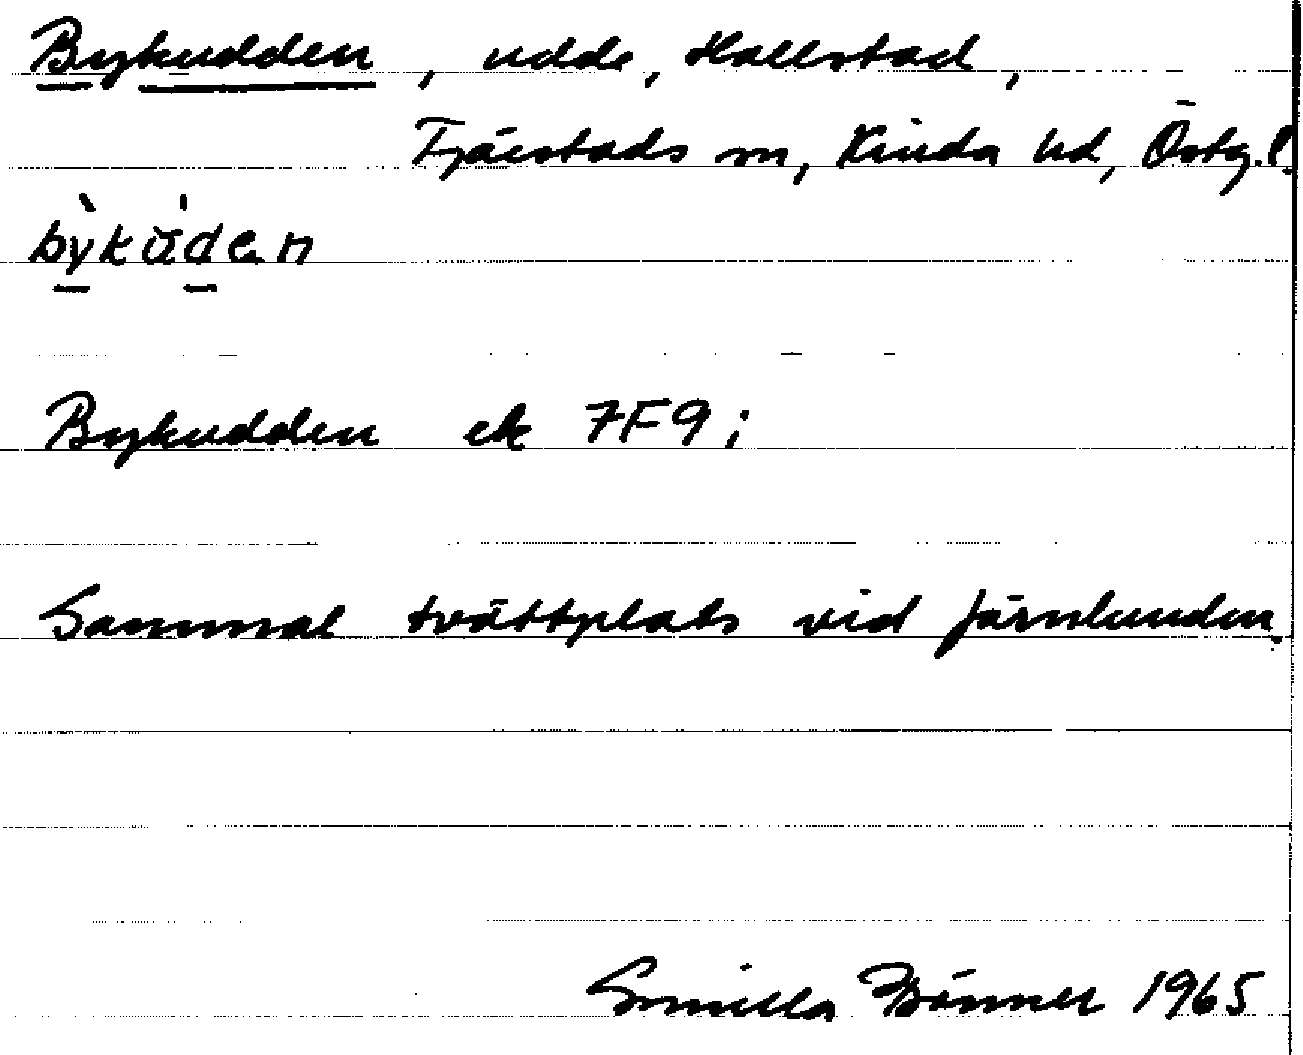 Bykudden, udde, Hallstad,
Tjärstads sn, Kinda hd, Östg.l.
bỳkúden
Bykudden ek 7F9;
Gammal tvättplats vid Järnlunden.
Gunilla 1965